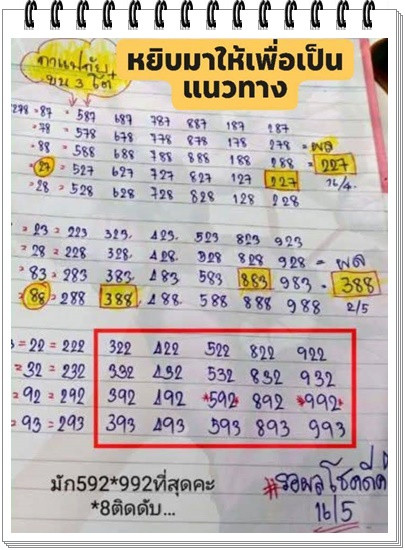 หยิบมาให้เพื่อเป็น
แนวทาง
กาแฟกับ
บน 3 โต๊ะ
278 = 87 = 587 687 787 887 187 287
= 78 = 578 678 778 878 178 278 = ผล
= 88 = 588 688 788 888 188 288 = 227
= 27 = 527 627 727 827 127 227 16/4.
= 28 = 528 628 728 828 128 228
= 23 = 223 323. 423. 523 823 923
= 28 = 228 328. 428. 528 828 928 = ผล
= 83 = 283 383. 483 583 883 983. = 388
= 88 = 288 388. 488. 588 888 988 2/5
= 22 = 222 322 422 522 822 922
= 32 = 232 332 432 532 832 932
= 92 = 292 392 492 *592* 892 *992*
= 93 = 293 393 493 593 893 993
มัก592*992ที่สุดคะ
*8ติดดับ...
#รอผลโชคดีค่ะ
16/5